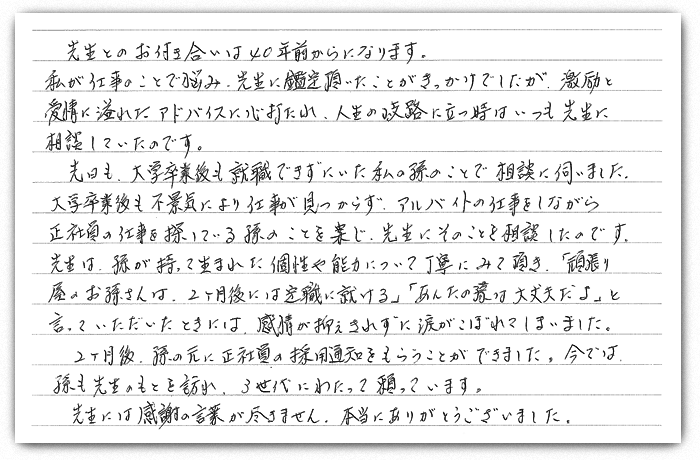 先生とのお付き合いは40年前からになります。
私が仕事のことで悩み、先生に鑑定頂いたことがきっかけでしたが、激励と
愛情に溢れたアドバイスに心打たれ、人生の岐路に立つ時はいつも先生に
相談していたのです。
先日も、大学卒業後も就職できずにいた私の孫のことで相談に伺いました。
大学卒業後も不景気により仕事が見つからず、アルバイトの仕事をしながら
正社員の仕事を探している孫のことを案じ、先生にそのことを相談したのです。
先生は、孫が持って生まれた個性や能力について丁寧にみて頂き、「頑張り
屋のお孫さんは、2ヶ月後には定職に就ける」「あんたの孫は大丈夫だよ」と
言っていただいたときには、感情が抑えきれずに涙がこぼれてしまいました。
2ヶ月後、孫の元に正社員の採用通知をもらうことができました。今では、
孫も先生のもとを訪れ、3世代にわたって頼っています。
先生には感謝の言葉が尽きません。本当にありがとうございました。